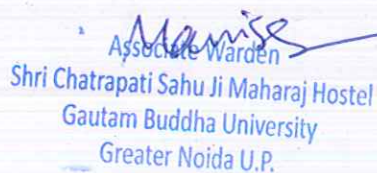 Associate Warden
Shri Chatrapati Sahu Ji Maharaj Hostel
Gautam Buddha University
Greater Noida U.P.